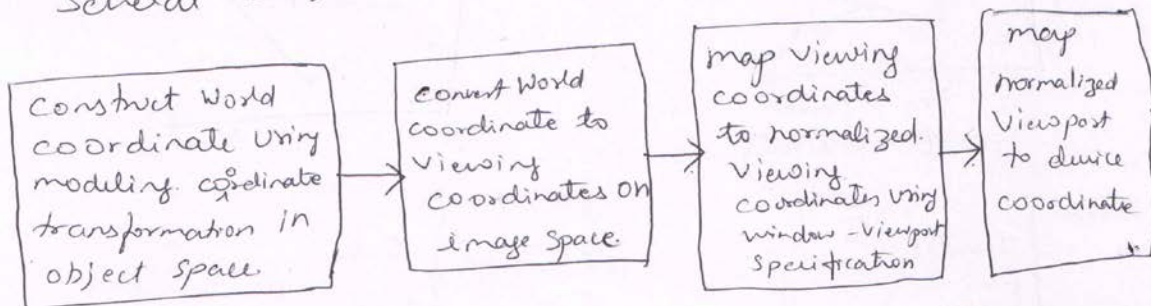 Construct World
coordinate using
modeling coordinate
transformation in
object space.
convert World
coordinate to
viewing
coordinates on
image space.
map viewing
coordinates
to normalized.
viewing
coordinates using
window-viewport
specification
map
normalized
viewport
to device
cooordinate